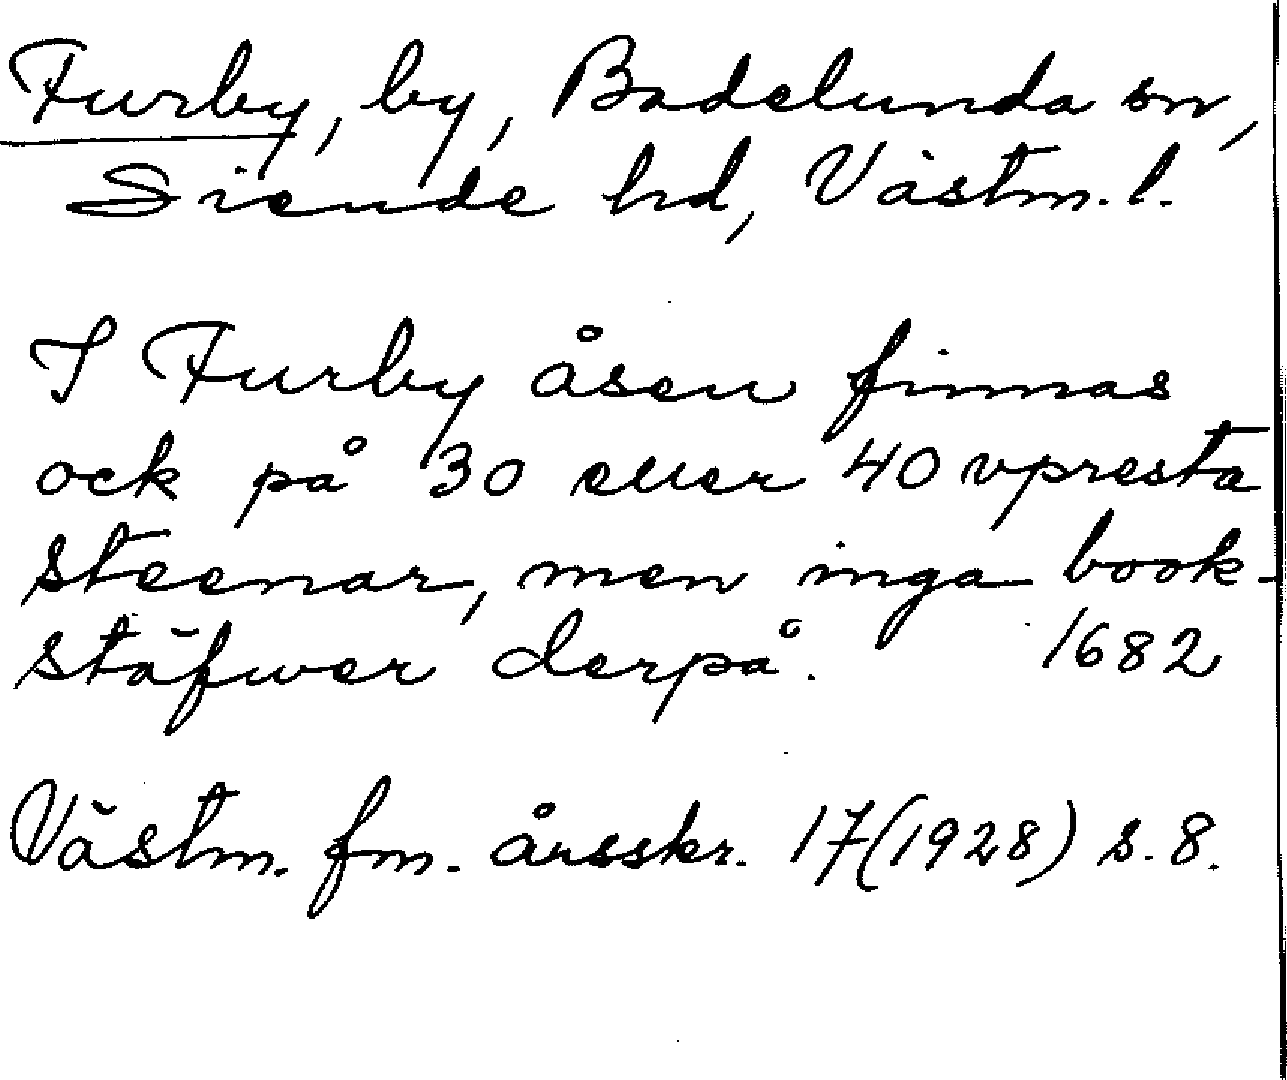 Furby, by, Badelunda sn,
Siende hd, Västm. l.
I Furby åsen finnas
ock på 30 eller 40 vpresta
steenar, men inga book-
stäfwer derpå. 1682
Västm. fm. årsskr. 17 (1928) s. 8.